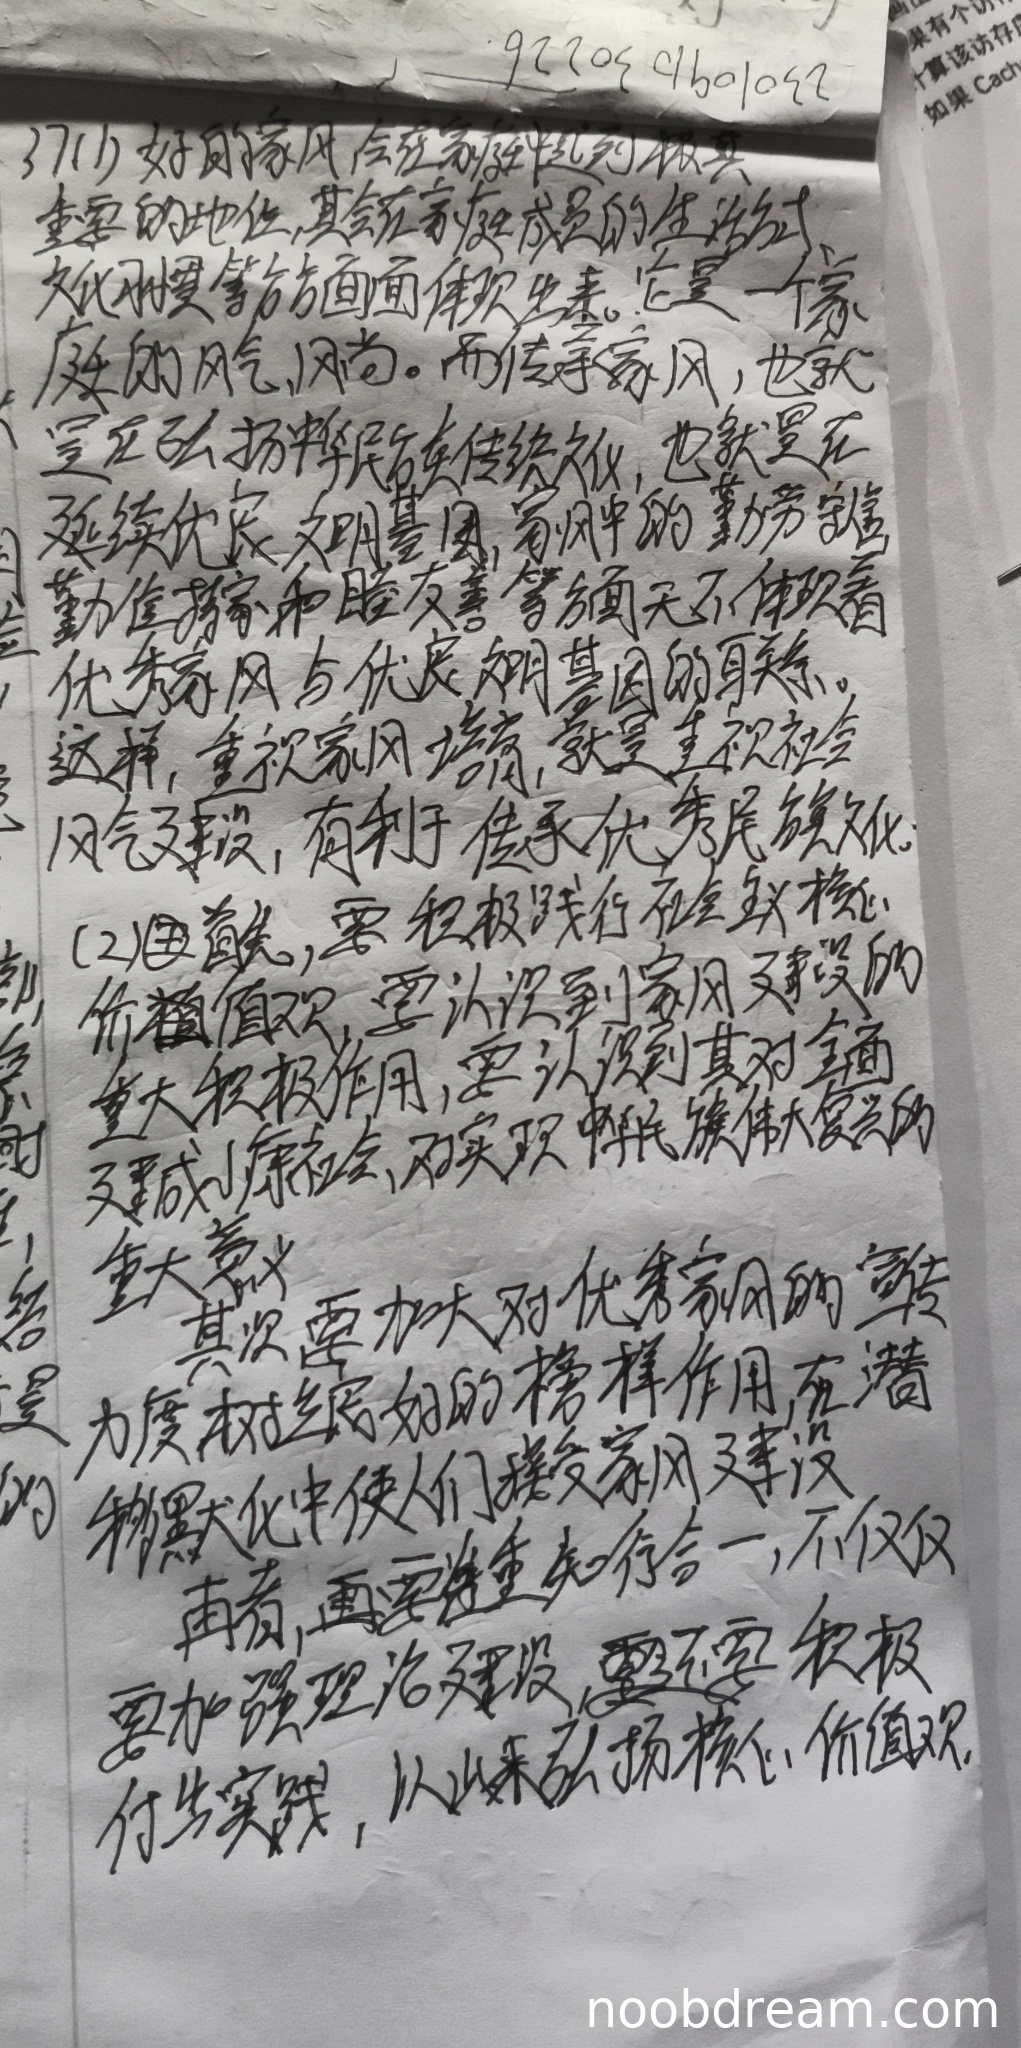 果有个访存
计算该访存
如果 Cach
37(1) 好的家风会在家庭中起到极其
重要的地位,其会在家庭成员的生活方式、
文化习惯等方方面面体现出来。它是一个家
庭的风气、风尚。而传承家风,也就
是在弘扬中华民族传统文化,也就是在
延续优良文明基因,家风中的勤劳守信,
勤俭持家和睦友善等方面无不体现着
优秀家风与优良文明基因的联系。
这样,重视家风培育,就是重视社会
风气建设,有利于传承优秀民族文化。
(2)首先,要积极践行社会主义核心
价值观,要认识到家风建设的
重大积极作用,要认识到其对全面
建成小康社会、对实现中华民族伟大复兴的
重大意义
其次要加大对优秀家风的宣传
力度树立层好的榜样作用,在潜
移默化中使人们接受家风建设
再者,要注重知行合一,不仅仅
要加强理论建设,还要积极
付出实践,以此来弘扬核心价值观.
noobdream.com